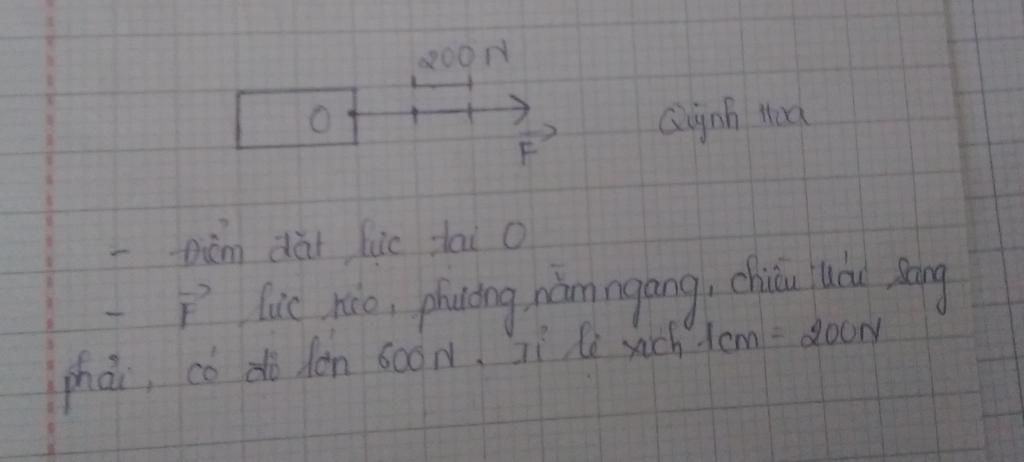 200N
O
F
Quỳnh Hoa
- Điểm đặt lực tại O
- F lực kéo, phương nằm ngang, chiều trái sang
phải, có độ lớn 600N. Tỉ lệ xích 1cm = 200N